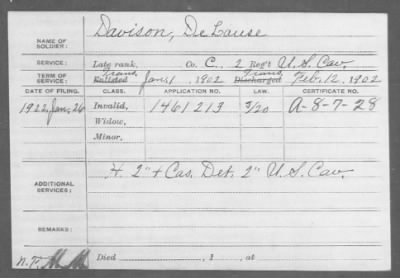 NAME OF SOLDIER: Davison, De Lause
SERVICE: Late rank, Co. C. 2 Reg't U. S. Cav.
TERM OF SERVICE: Trans. Enlisted Jan. 1, 1902 Trans. Discharged Feb. 12, 1902
DATE OF FILING. CLASS. APPLICATION NO. LAW. CERTIFICATE NO.
1922, Jan, 26 Invalid, 1461213 5/20 A-8-7-28
Widow,
Minor,
ADDITIONAL SERVICES: H. 2" + Cas. Det. 2" U. S. Cav.
REMARKS:
Died , 1 , at